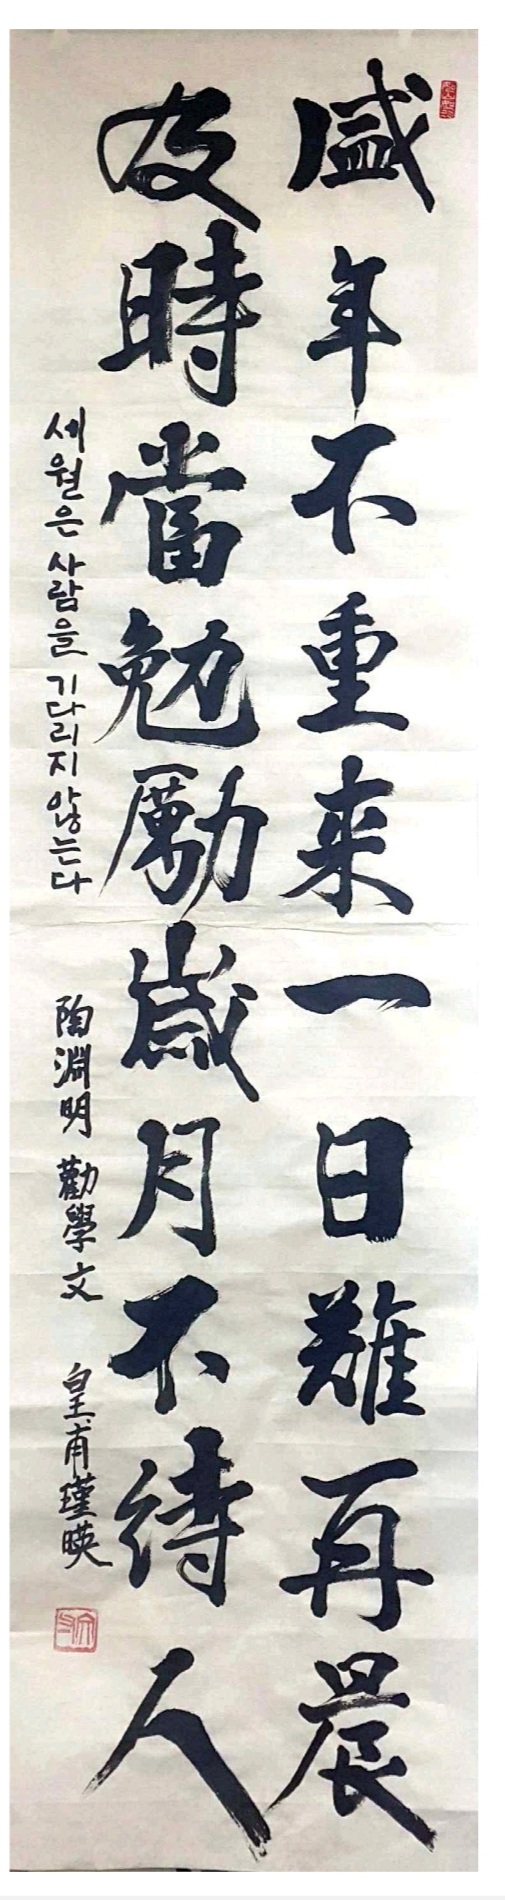 盛年不重来一日難再晨
及時當勉勵歲月不待人
세월은 사람을 기다리지 않는다
陶淵明 勸學文 皇甫瑾暎